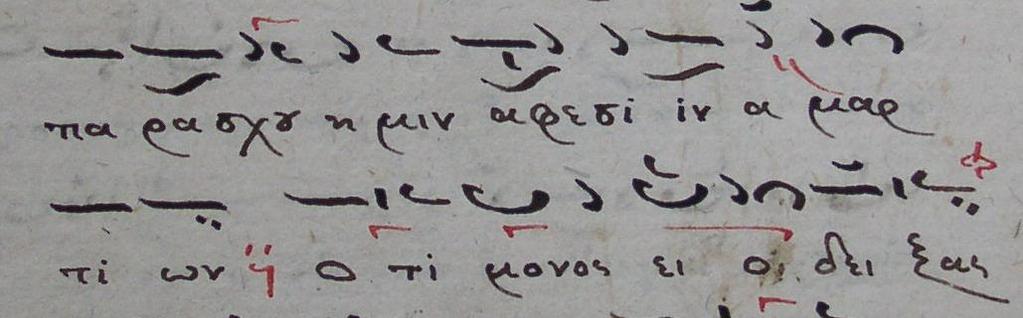 πα ρα σχȣ η μιν αφεσι ιν α μαρ
τι ων ὅ τι μονος ει ο δει ξας